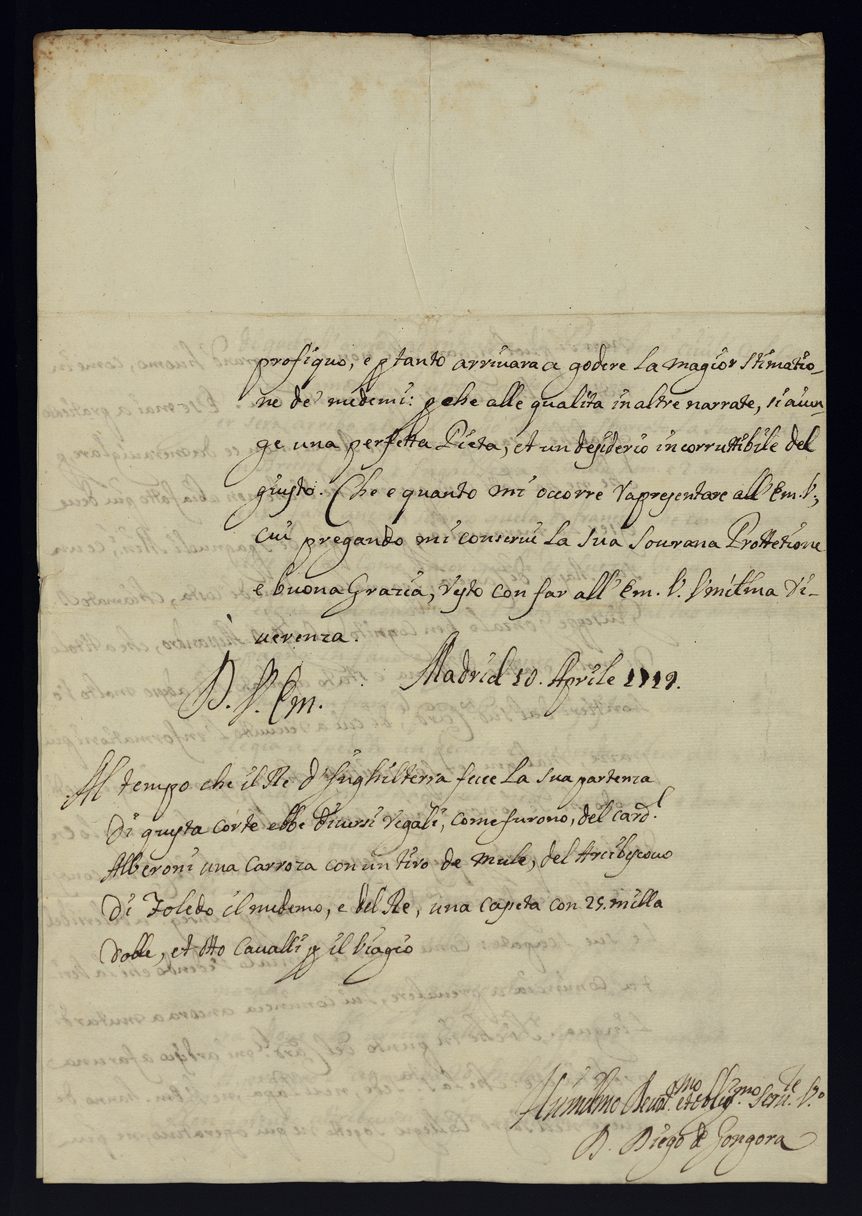 profiquo, e p tanto arrivara a godere la magior stimatio-
ne de' medemi: p che alle qualità in altre narrate, si aiun-
ge una perfetta Pieta, et un desiderio incorruttibile del
giusto. Che e quanto mi occorre rapresentare all' Em. V.,
cui pregando mi conservi la sua sourana Prottetione
e buona Grazia, resto con far all' Em. V. l'milma ri-
verenza.
D. V. Em. Madrid 10. Aprile 1719.
Al tempo che il Re d'Inghilterra fece la sua partenza
di questa corte ebbe diversi regali, come furono, del card.l
Alberoni una carroza con un tiro de mule, del Arcibescovo
di Toledo il medemo, e del Re, una caseta con 25. milla
doble, et otto cavalli p il viagio
Humilmo Devotmo et oblig.mo Serv.te V.o
D. Diego de Gongora